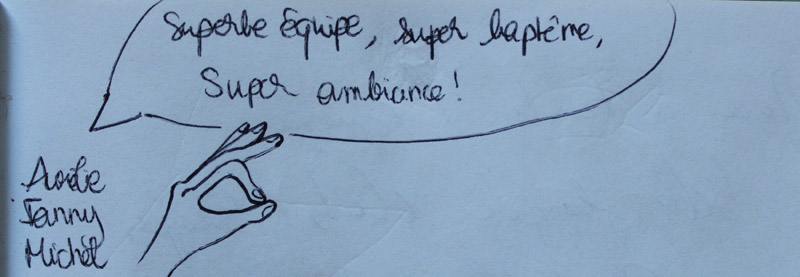 Superbe équipe, super baptême,
Super ambiance!
Jenny
Michel